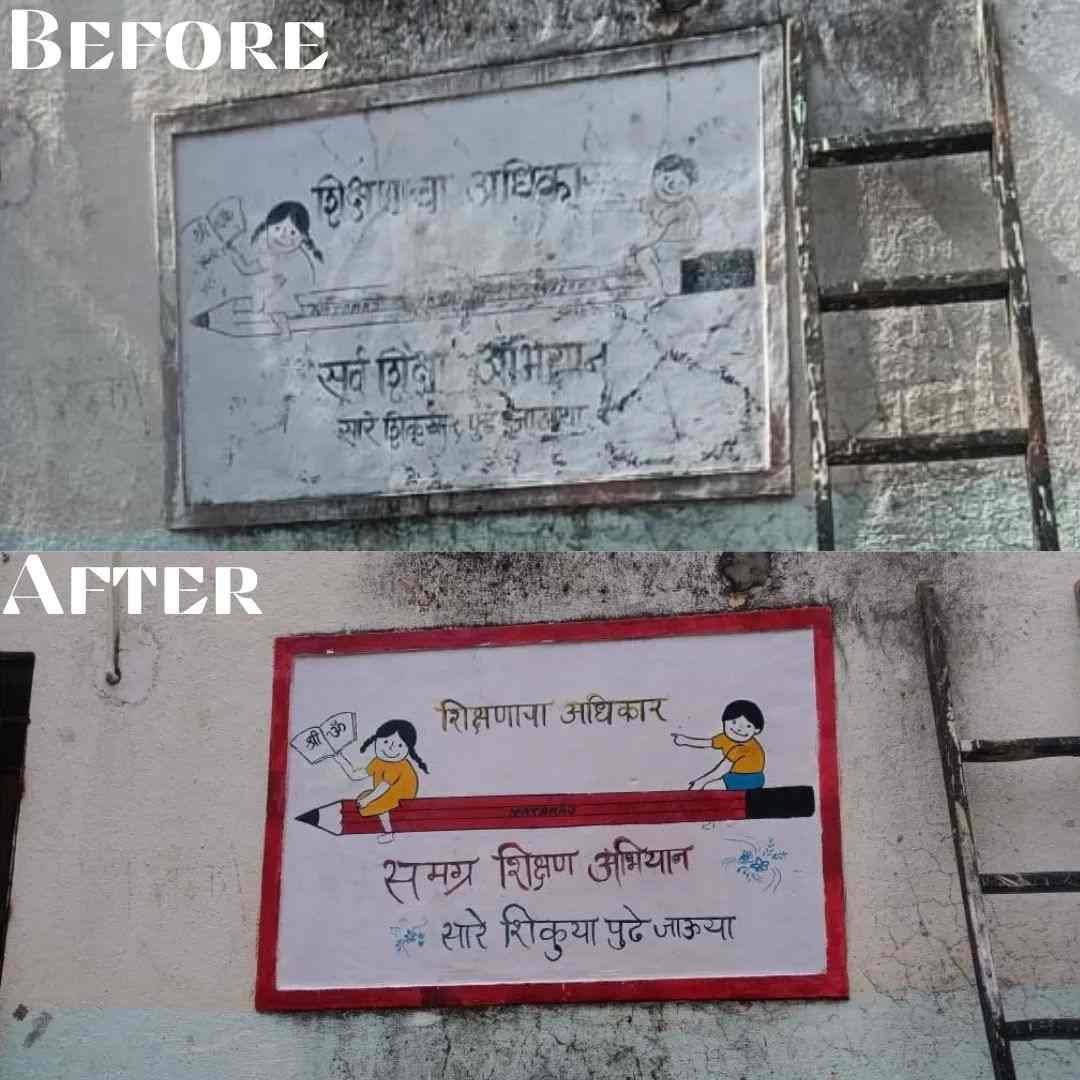 BEFORE
शिक्षणाचा अधिकार
श्री ॐ
सर्व शिक्षा अभियान
सारे शिकूया पुढे जाऊया
AFTER
शिक्षणाचा अधिकार
श्री ॐ
NATARAJ
समग्र शिक्षण अभियान
सारे शिकुया पुढे जाऊया